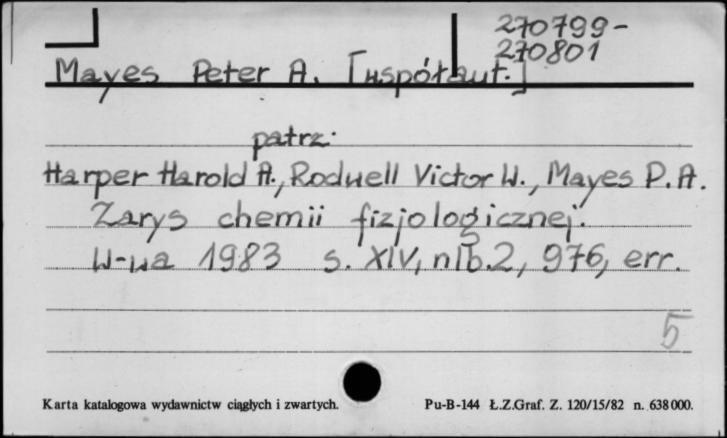 270799-
270801
Mayes Peter A. [współaut.]
patrz:
Harper Harold A., Roduell Victor W., Mayes P.A.
Zarys chemii fizjologicznej.
W-wa 1983 s. XIV, nlb.2, 976, err.
5
Karta katalogowa wydawnictw ciągłych i zwartych. Pu-B-144 Ł.Z.Graf. Z. 120/15/82 n. 638 000.